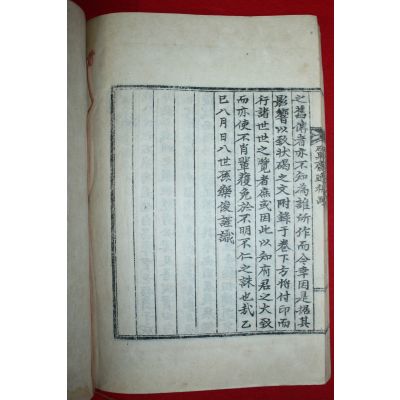 之舊傳者亦不知爲誰所作而今幸因是摭其
影響以敘狀碣之文附錄于卷下方將付印而
行諸世世之覽者庶或因此以知府君之大致
而亦使不肖輩獲免於不明不仁之誅也哉乙
巳八月日八世孫樂俊謹識